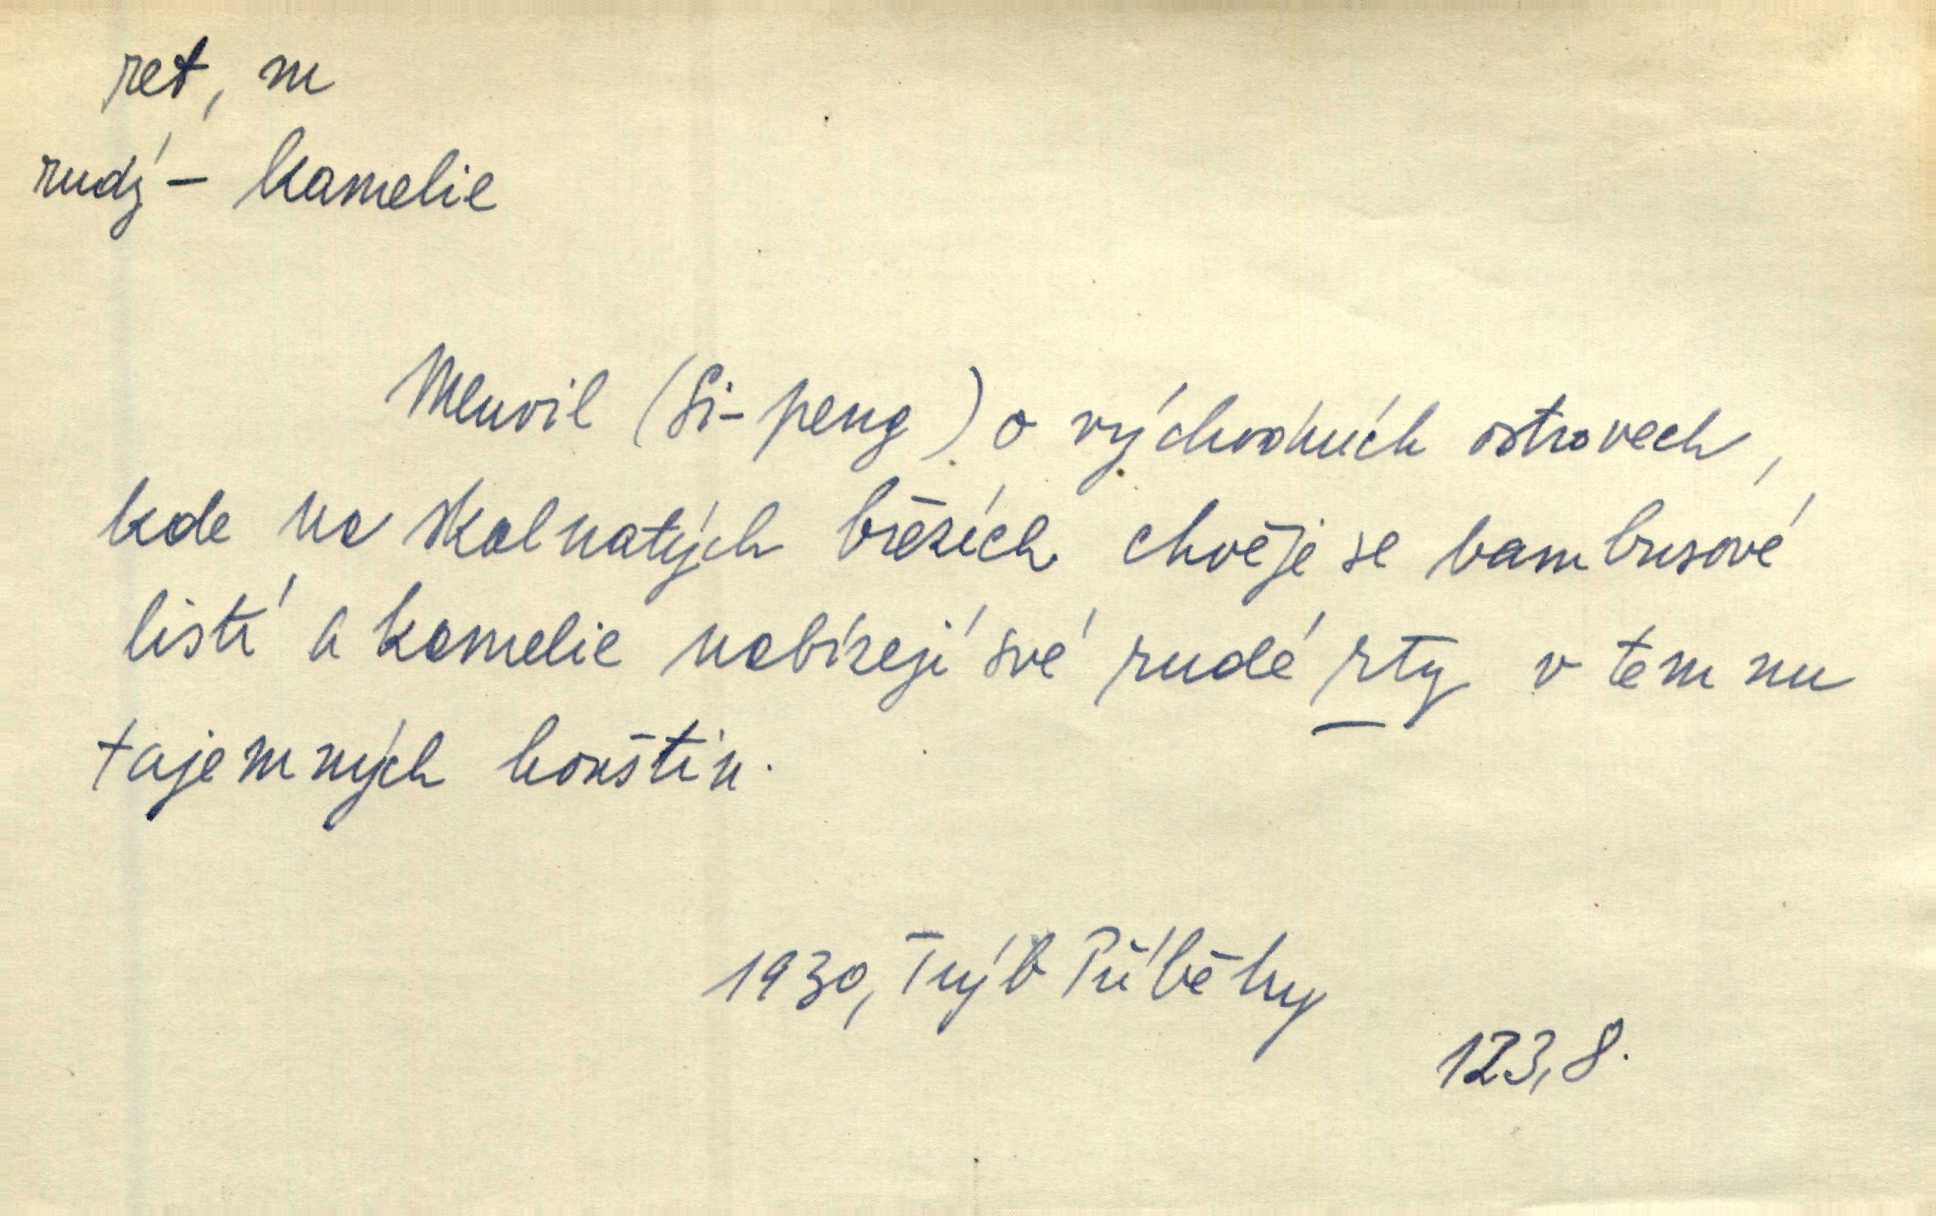 ret, m
rudý – kamelie
Mluvil (Si-peng) o východních ostrovech,
kde na skalnatých březích chvěje se bambusové
listí a kamelie nabízejí své rudé rty v temnu
tajemných houštin.
1930, Trýb Příběhy
123,8.